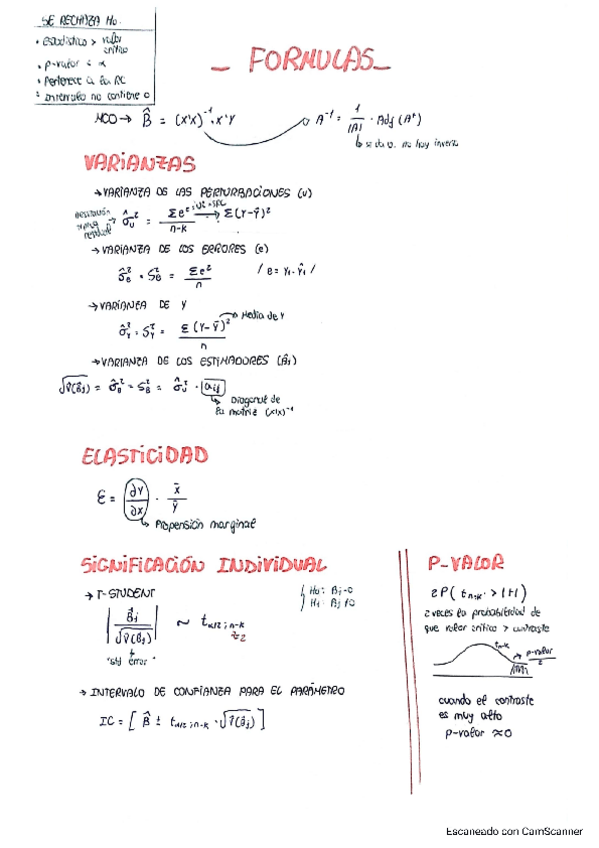 SE RECHAZA Ho
• Estadístico > valor
crítico
• p-valor < α
• Pertenece a la RC
• Intervalo no contiene 0
_ FORMULAS _
MCO → B̂ = (X'X)⁻¹ · X'Y
A⁻¹ = 1/|A| · Adj (Aᵗ)
↳ si da 0, no hay inversa
VARIANZAS
→ VARIANZA DE LAS PERTURBACIONES (U)
σ̂²ᵤ = Σe²/n-k → Σ(Y-Ŷ)²
→ VARIANZA DE LOS ERRORES (e)
σ̂²ₑ = S²ₑ = Σe²/n / e = Yᵢ - Ŷᵢ /
→ VARIANZA DE Y
σ̂²ᵧ = S²ᵧ = Σ(Y-Ȳ)²/n → Media de Y
→ VARIANZA DE LOS ESTIMADORES (B̂j)
√V̂(B̂j) = σ̂²_B = S²_B = σ̂²ᵤ · aij
↳ Diagonal de
la matriz (X'X)⁻¹
ELASTICIDAD
Ɛ = ∂Y/∂X · X̄/Ȳ
↳ Propensión marginal
SIGNIFICACIÓN INDIVIDUAL
→ T-STUDENT
Ho: Bj=0
H1: Bj≠0
|B̂j/√V̂(B̂j)| ~ tα/2; n-k
≈2
"std error"
→ INTERVALO DE CONFIANZA PARA EL PARÁMETRO
IC = [ B̂ ± tα/2; n-k · √V̂(B̂j) ]
P-VALOR
2P( tn-k > |t| )
2 veces la probabilidad de
que valor crítico > contraste
tn-k
p-valor/2
cuando el contraste
es muy alto
p-valor ≈ 0
Escaneado con CamScanner